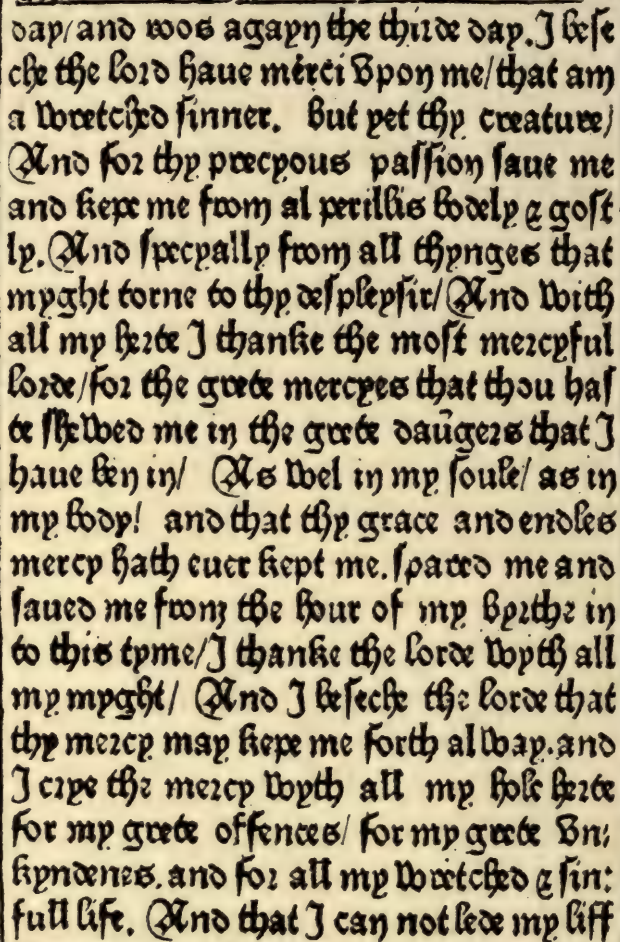 day/and roos agayn the thirde day. I bese
che the lord haue merci vpon me/that am
a wretched sinner. But yet thy creature/
And for thy precyous passion saue me
and kepe me from al perillis bodely & gost
ly. And specyally from all thynges that
myght torne to thy despleysir/ And with
all my herte I thanke the most mercyful
lorde/for the grete mercyes that thou has
te shewed me in the grete daūgers that I
haue ben in/ As wel in my soule/ as in
my body/ and that thy grace and endles
mercy hath euer kept me. spared me and
saued me from the hour of my byrthe in
to this tyme/I thanke the lorde wyth all
my myght/ And I beseche the lorde that
thy mercy may kepe me forth alway. and
I crye the mercy wyth all my hole herte
for my grete offences/ for my grete vn:
kyndenes. and for all my wretched & sin:
full life. And that I can not lede my liff